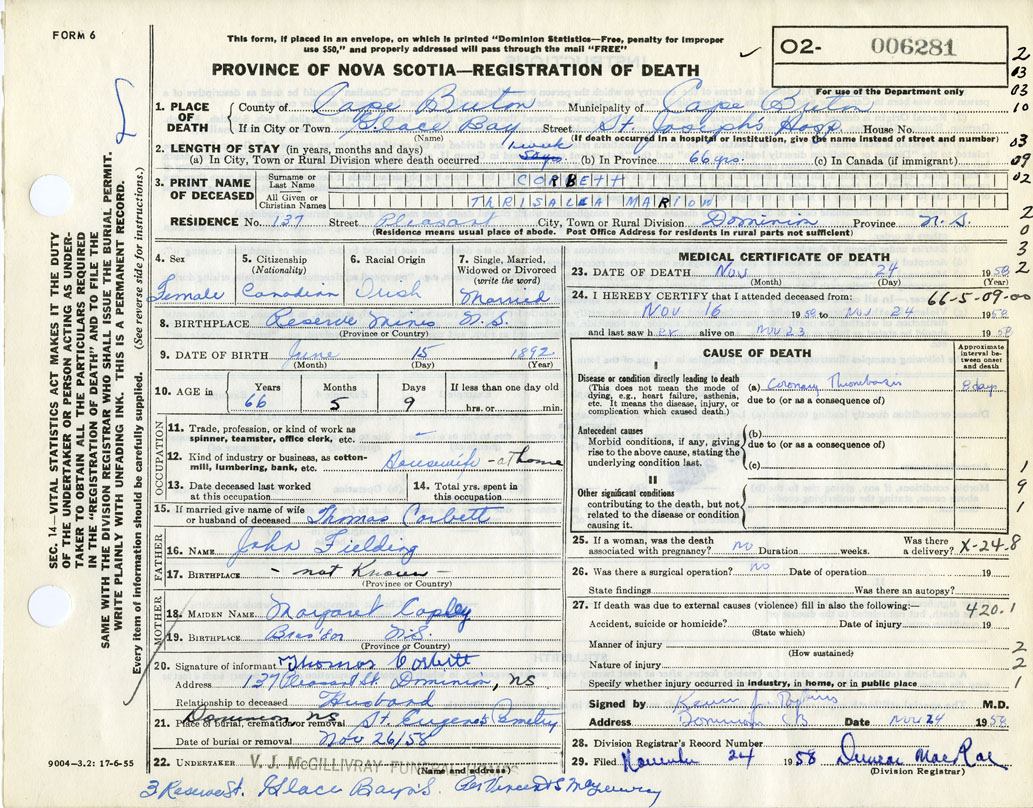 FORM 6
This form, if placed in an envelope, on which is printed "Dominion Statistics—Free, penalty for improper
use $50," and properly addressed will pass through the mail "FREE"
O2- 006281
PROVINCE OF NOVA SCOTIA—REGISTRATION OF DEATH
For use of the Department only
1. PLACE OF DEATH County of Cape Breton Municipality of Cape Breton
If in City or Town Glace Bay Street St. Joseph's Hosp House No.
(Name) (If death occurred in a hospital or institution, give the name instead of street and number)
2. LENGTH OF STAY (in years, months and days)
(a) In City, Town or Rural Division where death occurred 1 week days. (b) In Province 66 yrs. (c) In Canada (if immigrant)
3. PRINT NAME OF DECEASED Surname or Last Name CORBETT
All Given or Christian Names THRISALLA MARION
RESIDENCE No. 137 Street Pleasant City, Town or Rural Division Dominion Province N.S.
(Residence means usual place of abode. Post Office Address for residents in rural parts not sufficient)
4. Sex Female
5. Citizenship (Nationality) Canadian
6. Racial Origin Irish
7. Single, Married, Widowed or Divorced (write the word) Married
8. BIRTHPLACE Reserve Mines N.S.
(Province or Country)
9. DATE OF BIRTH June 15 1892
(Month) (Day) (Year)
10. AGE in Years 66 Months 5 Days 9 If less than one day old hrs. or min.
OCCUPATION
11. Trade, profession, or kind of work as spinner, teamster, office clerk, etc. -
12. Kind of industry or business, as cotton-mill, lumbering, bank, etc. Housewife - at home
13. Date deceased last worked at this occupation
14. Total yrs. spent in this occupation
15. If married give name of wife or husband of deceased Thomas Corbett
FATHER
16. NAME John Fielding
17. BIRTHPLACE - not Known -
(Province or Country)
MOTHER
18. MAIDEN NAME Margaret Copley
19. BIRTHPLACE Bras'dor N.S.
(Province or Country)
20. Signature of informant Thomas Corbett
Address 137 Pleasant St. Dominion, NS
Relationship to deceased Husband
21. Place of burial, cremation or removal Dominion NS St. Eugene's Cemetery
Date of burial or removal Nov 26/58
22. UNDERTAKER V. J. McGILLIVRAY FUNERAL
(Name and address)
3 Reserve St. Glace Bay N.S. Per Vincent S McGillivray
9004—3.2: 17-6-55
MEDICAL CERTIFICATE OF DEATH
23. DATE OF DEATH Nov 24 1958
(Month) (Day) (Year)
24. I HEREBY CERTIFY that I attended deceased from: 66-5-09-00
Nov 16 1958 to Nov 24 1958
and last saw her alive on Nov 23 1958
CAUSE OF DEATH
Approximate interval between onset and death
I
Disease or condition directly leading to death
(This does not mean the mode of dying, e.g., heart failure, asthenia, etc. It means the disease, injury, or complication which caused death.)
(a) Coronary Thrombosis 8 days
due to (or as a consequence of)
Antecedent causes
Morbid conditions, if any, giving rise to the above cause, stating the underlying condition last.
(b)
due to (or as a consequence of)
(c)
II
Other significant conditions
contributing to the death, but not related to the disease or condition causing it.
25. If a woman, was the death associated with pregnancy? no Duration weeks. Was there a delivery? X-24-8
26. Was there a surgical operation? no Date of operation 19
State findings Was there an autopsy?
27. If death was due to external causes (violence) fill in also the following:— 420.1
Accident, suicide or homicide? Date of injury 19
(State which)
Manner of injury
(How sustained)
Nature of injury
Specify whether injury occurred in industry, in home, or in public place
Signed by Kevin J. M.D.
Address Dominion CB Date Nov 24 1958
28. Division Registrar's Record Number
29. Filed November 24 1958 Duncan MacRae
(Division Registrar)
2
03
03
10
03
09
02
2
0
3
2
1
9
1
2
2
1
SEC. 14—VITAL STATISTICS ACT MAKES IT THE DUTY
OF THE UNDERTAKER OR PERSON ACTING AS UNDER-
TAKER TO OBTAIN ALL THE PARTICULARS REQUIRED
IN THE "REGISTRATION OF DEATH" AND TO FILE THE
SAME WITH THE DIVISION REGISTRAR WHO SHALL ISSUE THE BURIAL PERMIT.
WRITE PLAINLY WITH UNFADING INK. THIS IS A PERMANENT RECORD.
Every item of information should be carefully supplied. (See reverse side for instructions.)